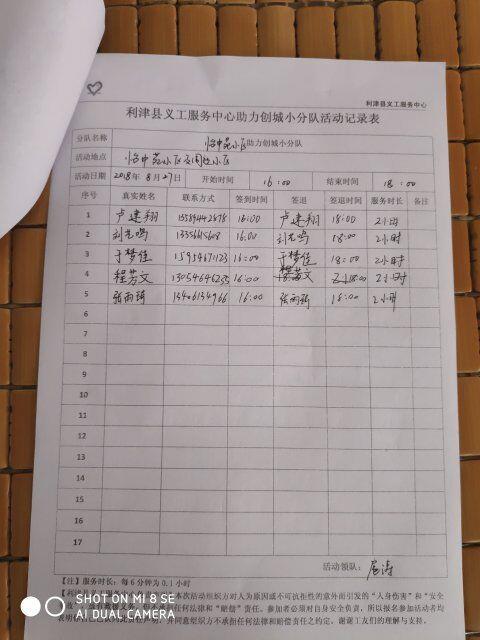 利津县义工服务中心
利津县义工服务中心助力创城小分队活动记录表
分队名称 怡中苑小区助力创城小分队
活动地点 怡中苑小区及周边小区
活动日期 2018年8月27日 开始时间 16:00 结束时间 18:00
序号 真实姓名 联系方式 签到时间 签退 签退时间 服务时长 备注
1 卢建翔 16:00 卢建翔 18:00 2小时
2 16:00 18:00 2小时
3 于梦佳 16:00 于梦佳 18:00 2小时
4 程芳文 16:00 程芳文 18:00 2小时
5 张雨琦 13406134966 16:00 张雨琦 18:00 2小时
6
7
8
9
10
11
12
13
14
15
16
17
活动领队:
【注】服务时长:每6分钟为0.1小时
【利津县义工服务中心 本次活动组织方对人为原因或不可抗拒性的意外而引发的“人身伤害”和“安全
任何法律和“赔偿”责任。参加者必须对自身安全负责,所以报名参加活动者均
并同意组织方不承担任何法律和赔偿责任之约定。谢谢义工们的理解与支持。
SHOT ON MI 8 SE
AI DUAL CAMERA